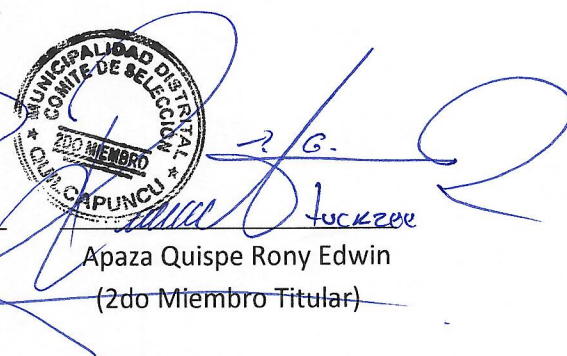 MUNICIPALIDAD DISTRITAL
COMITE DE SELECCIÓN
2DO MIEMBRO
QUILCAPUNCU
Apaza Quispe Rony Edwin
(2do Miembro Titular)